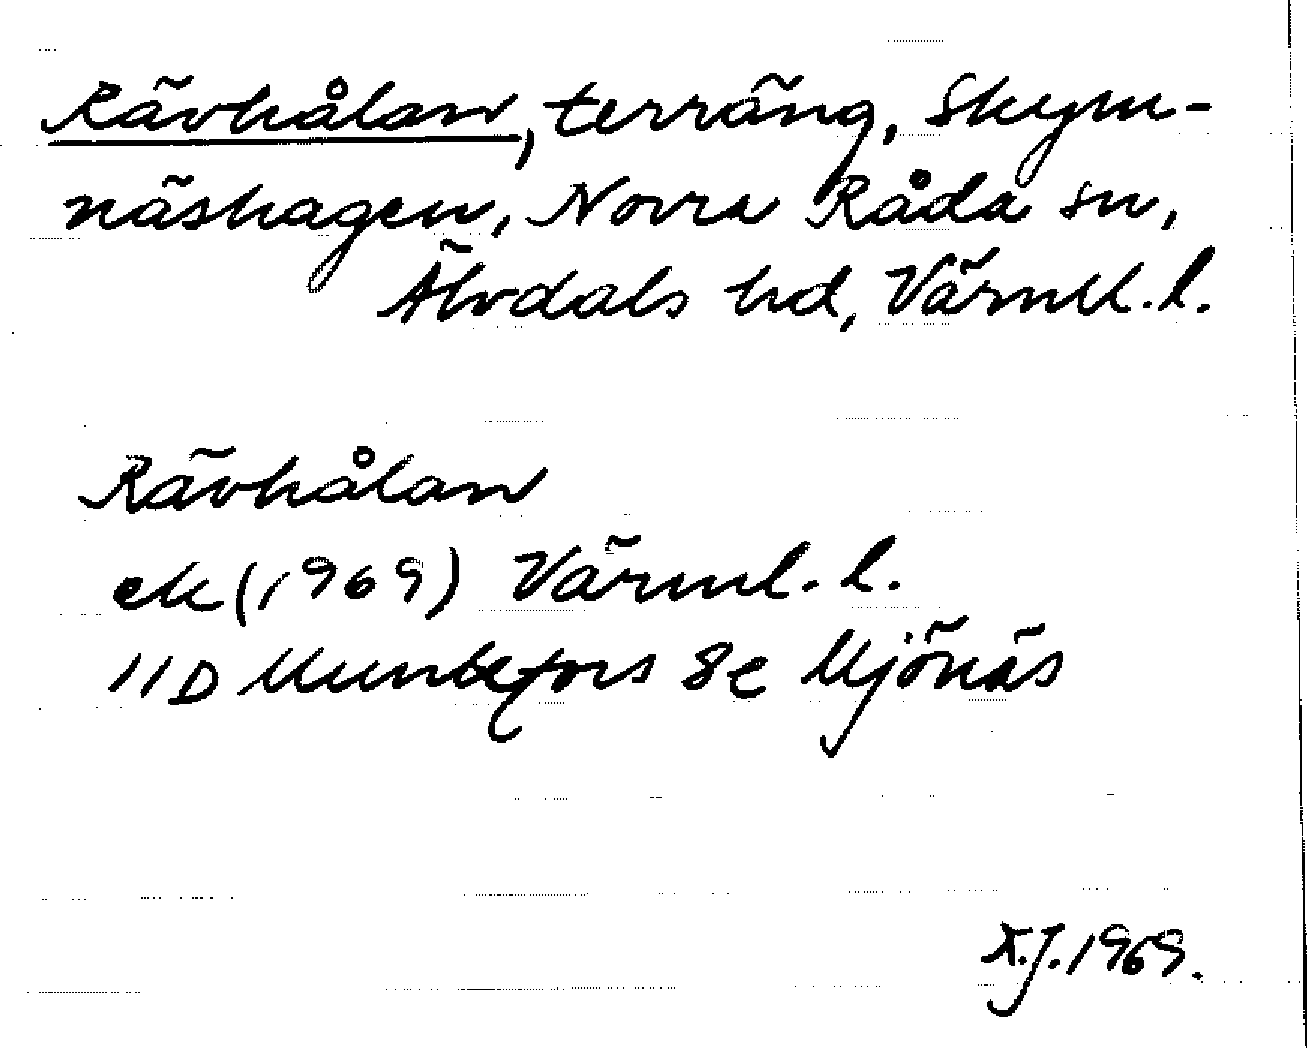 Rävhålan, terräng, Skym-
näshagen, Norra Råda sn,
Älvdals hd, Värml. l.
Rävhålan
ek (1969) Värml. l.
11D Munkfors 8e Mjönäs
K.J. 1969.